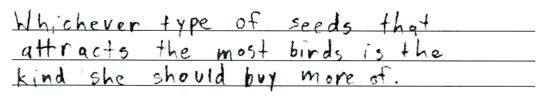 Whichever type of seeds that
attracts the most birds is the
kind she should buy more of.